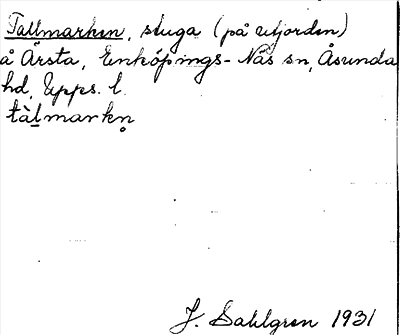 Tallmarken, stuga (på utjorden)
å Årsta, Enköpings-Näs sn, Åsunda
hd, Upps. l.
tàl̠markn̥
J. Sahlgren 1931